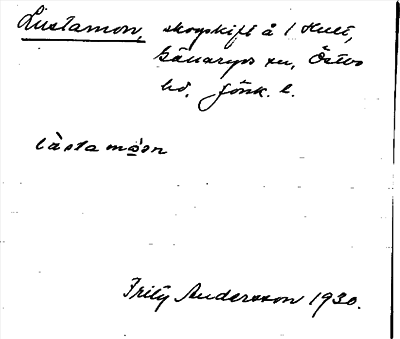 Lustamon, skogskift å 1 Hult,
Bäckaryds sn, Östbo
hd. Jönk. l.
làsta må̀sn
Frity Andersson 1930.